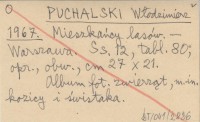 PUCHALSKI Włodzimierz
1967. Mieszkańcy lasów. –
Warszawa. Ss. 12, tabl. 80;
opr., obw., cm 27 x 21.
Album fot. zwierząt, m.in.
kozicy i świstaka.